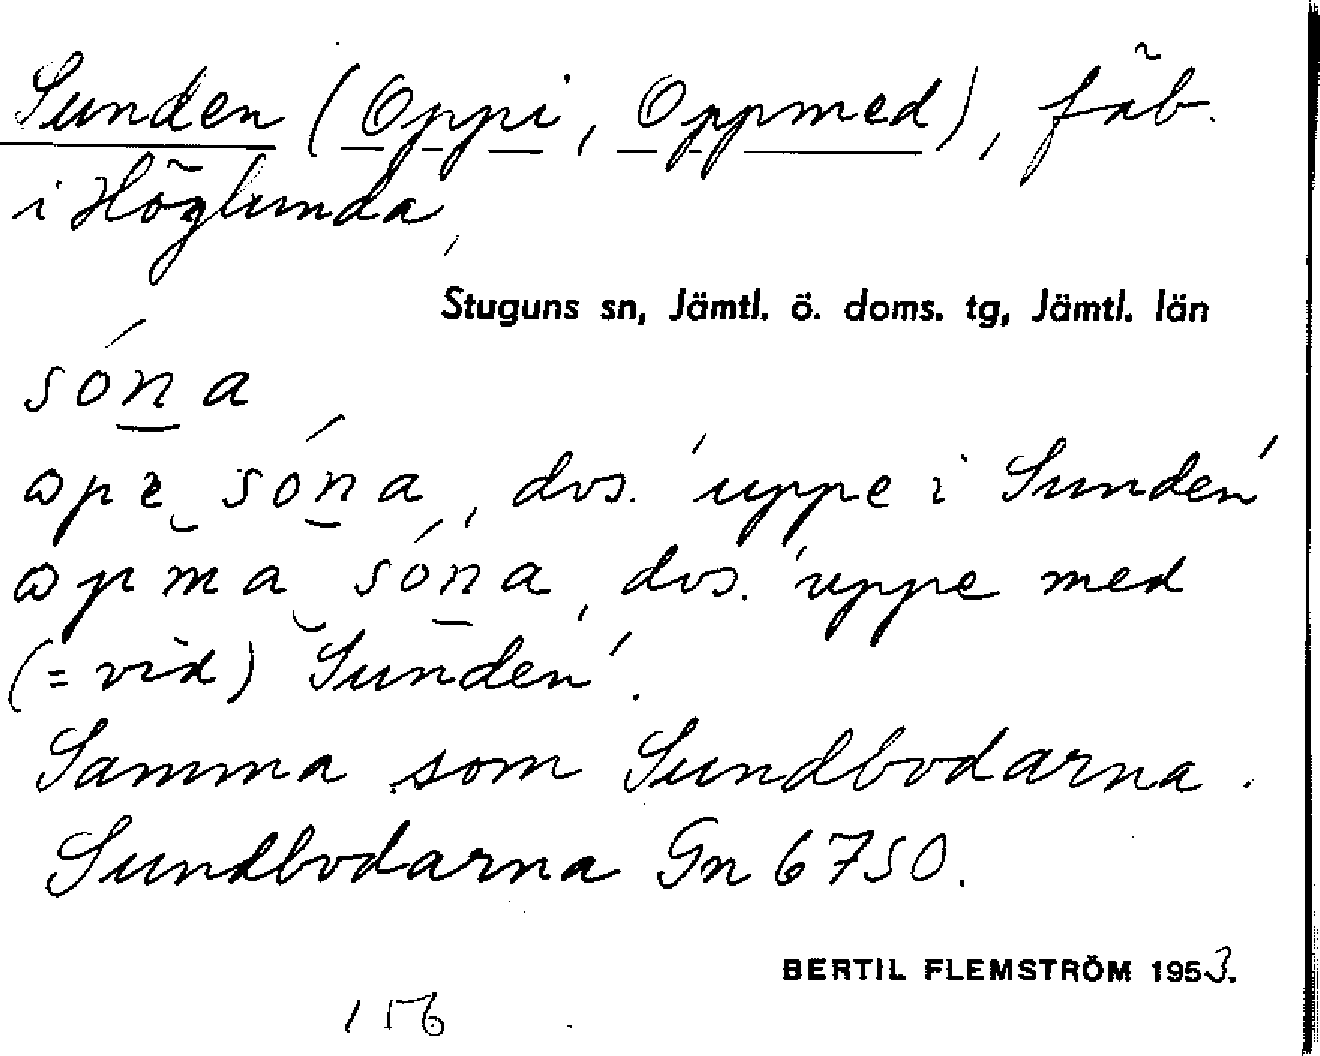 Sunden (Oppi, Oppmed), fäb.
i Höglunda,
Stuguns sn, Jämtl. ö. doms. tg, Jämtl. län
són̲a
ɷpɛ‿són̲a, dvs. 'uppe i Sunden'
ɷpma‿són̲a, dvs. 'uppe med
(= vid) Sunden'.
Samma som Sundbodarna.
Sundbodarna Gn 6750.
BERTIL FLEMSTRÖM 1953.
156